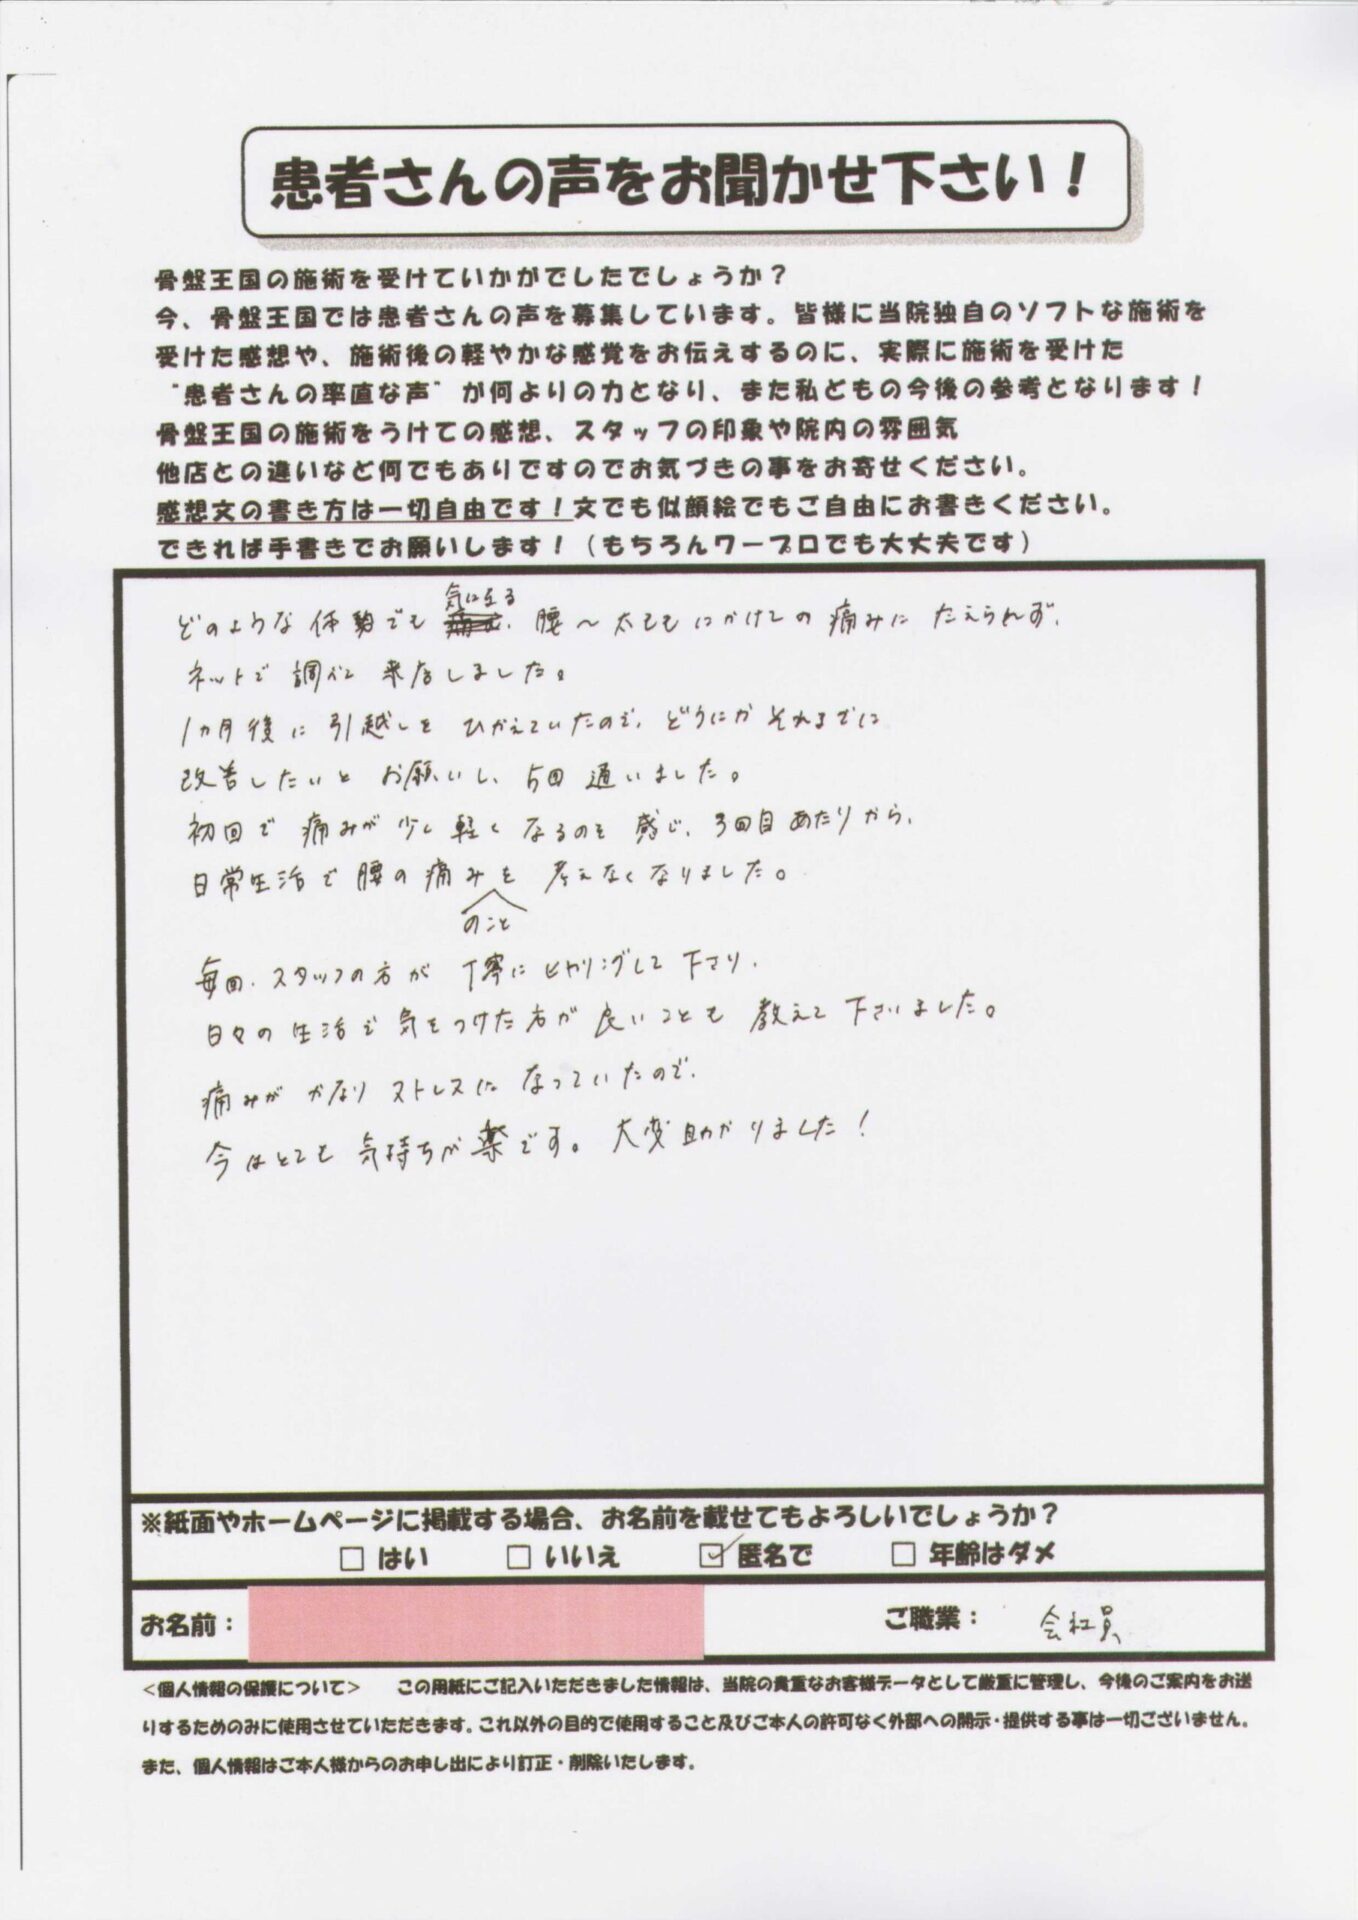 患者さんの声をお聞かせ下さい！
骨盤王国の施術を受けていかがでしたでしょうか？
今、骨盤王国では患者さんの声を募集しています。皆様に当院独自のソフトな施術を
受けた感想や、施術後の軽やかな感覚をお伝えするのに、実際に施術を受けた
"患者さんの率直な声"が何よりの力となり、また私どもの今後の参考となります！
骨盤王国の施術をうけての感想、スタッフの印象や院内の雰囲気
他店との違いなど何でもありですのでお気づきの事をお寄せください。
感想文の書き方は一切自由です！文でも似顔絵でもご自由にお書きください。
できれば手書きでお願いします！（もちろんワープロでも大丈夫です）
どのような体勢でも気になる、腰～太ももにかけての痛みにたえられず、
ネットで調べて来店しました。
1カ月後に引越しをひかえていたので、どうにかそれまでに
改善したいとお願いし、5回通いました。
初回で痛みが少し軽くなるのを感じ、3回目あたりから、
日常生活で腰の痛みのことを考えなくなりました。
毎回、スタッフの方が丁寧にヒヤリングして下さり、
日々の生活で気をつけた方が良いことも教えて下さいました。
痛みがかなりストレスになっていたので、
今はとても気持ちが楽です。大変助かりました！
※紙面やホームページに掲載する場合、お名前を載せてもよろしいでしょうか？
□ はい □ いいえ ☑ 匿名で □ 年齢はダメ
お名前： ご職業： 会社員
＜個人情報の保護について＞ この用紙にご記入いただきました情報は、当院の貴重なお客様データとして厳重に管理し、今後のご案内をお送
りするためのみに使用させていただきます。これ以外の目的で使用すること及びご本人の許可なく外部への開示・提供する事は一切ございません。
また、個人情報はご本人様からのお申し出により訂正・削除いたします。